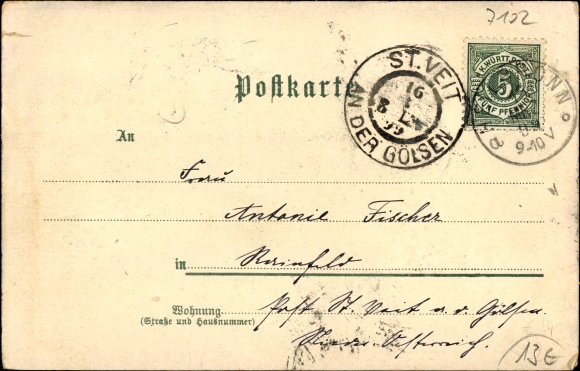 7102
K. WÜRTT. POST
5
FÜNF PFENNIG
ONN
9-10 V
ST. VEIT
16
8
99
AN DER GÖLSEN
Postkarte
An
Frau
Antonie Fischer
in Rainfeld
Wohnung
(Straße und Hausnummer)
Post St. Veit a. d. Gölsen
Nieder-Oesterreich.
13€